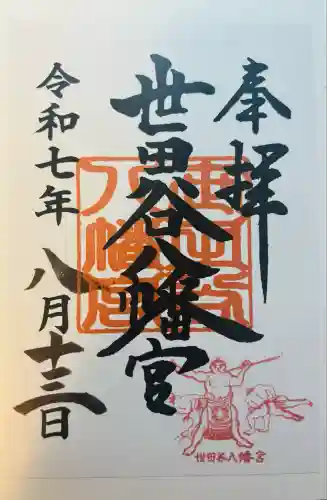 奉拝
世田谷八幡宮
令和七年 八月十三日
世田谷八幡宮
世田谷八幡宮